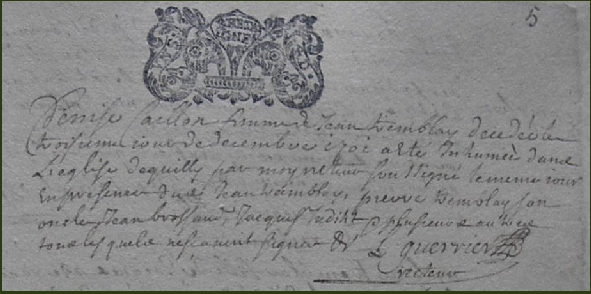 5
Denise caillon femme de Jean tremblay decedée le
troisieme jour de decembre 1701 a eté Inhumée dans
L'eglise de quilly par moy recteur soussigné le meme jour
En presence du dit Jean tremblay, pierre tremblay son
oncle Jean brossaud, Jacques & plusieurs autres
tous lesquels ne signent L guerrier
recteur